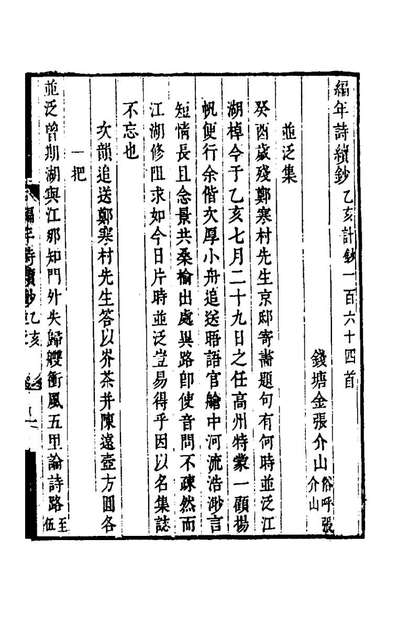 編年詩續鈔乙亥計鈔一百六十四首
錢塘金張介山俗呼張介山
並泛集
癸酉歲殘鄭寒村先生京邸寄齋題句有何時並泛江
湖棹今于乙亥七月二十九日之任高州特蒙一顧揚
帆便行余偕次厚小舟追送晤語官艙中河流浩渺言
短情長且念景共桑榆出處異路即使音問不疎然而
江湖修阻求如今日片時並泛豈易得乎因以名集誌
不忘也
次韻追送鄭寒村先生答以岕茶并陳遠壺方圓各
一把
並泛曾期湖與江那知門外失歸艭衝風五里論詩路至伍
編年詩續鈔 乙亥 並泛